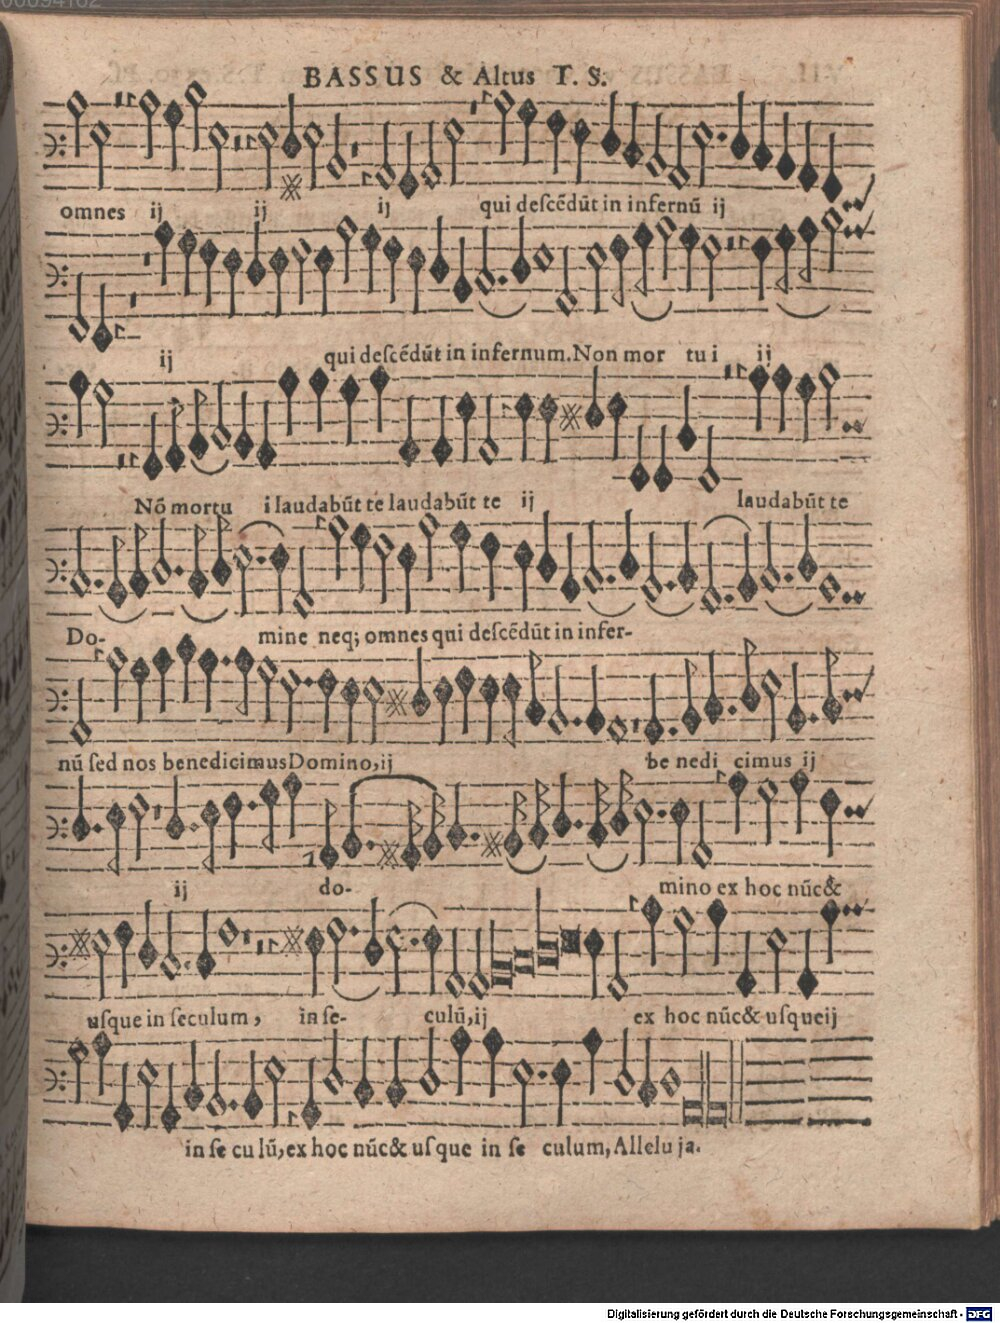 00094162
BASSUS & Altus T. S.
omnes ij ij ij qui deſcēdūt in infernū ij
ij qui deſcēdūt in infernum. Non mor tu i ij
Nō mortu i laudabūt te laudabūt te ij laudabūt te
Do- mine neq; omnes qui deſcēdūt in infer-
nū ſed nos benedicimus Domino, ij be nedi cimus ij
ij do- mino ex hoc nūc &
uſque in ſeculum, in ſe- culū, ij ex hoc nūc & uſque ij
in ſe cu lū, ex hoc nūc & uſ que in ſe culum, Allelu ja.
Digitalisierung gefördert durch die Deutsche Forschungsgemeinschaft - DFG